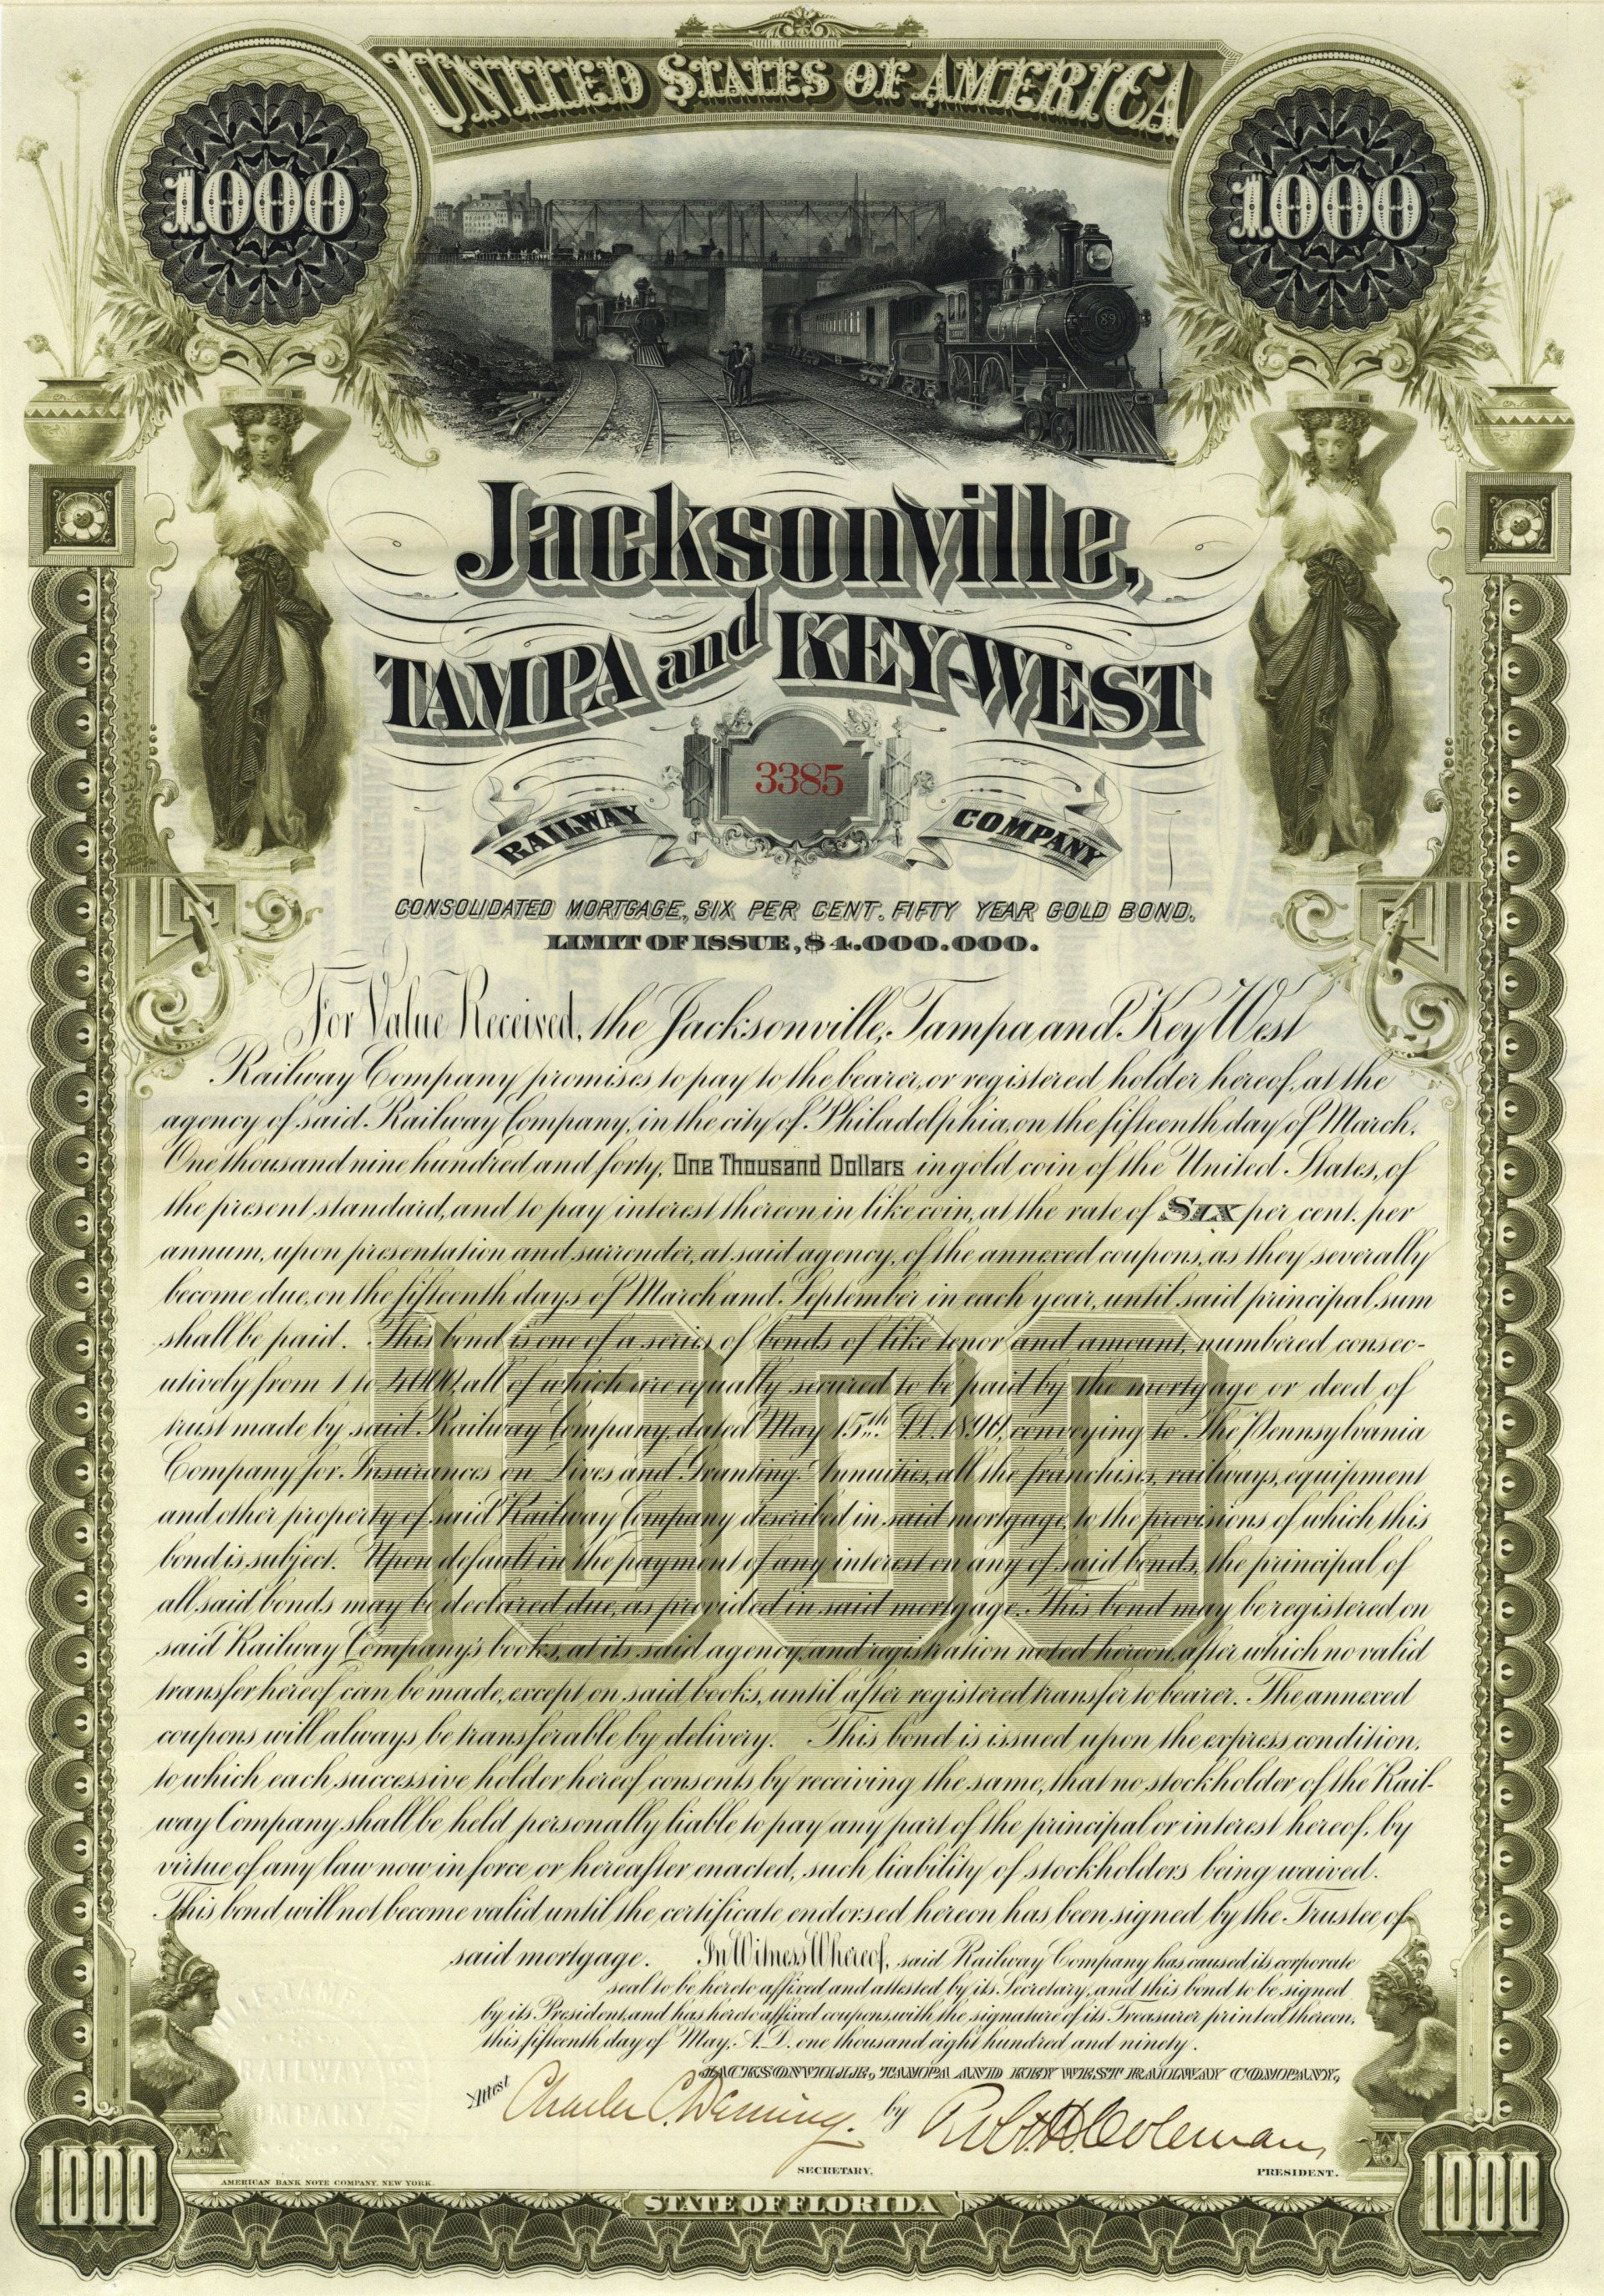 UNITED STATES OF AMERICA
1000
1000
89
Jacksonville,
TAMPA and KEY-WEST
3385
RAILWAY COMPANY
CONSOLIDATED MORTGAGE, SIX PER CENT. FIFTY YEAR GOLD BOND.
LIMIT OF ISSUE, $4.000.000.
For Value Received, the Jacksonville, Tampa and Key West
Railway Company promises to pay to the bearer, or registered holder hereof, at the
agency of said Railway Company, in the city of Philadelphia, on the fifteenth day of March,
One thousand nine hundred and forty, One Thousand Dollars in gold coin of the United States, of
the present standard, and to pay interest thereon in like coin, at the rate of SIX per cent. per
annum, upon presentation and surrender, at said agency, of the annexed coupons, as they severally
become due, on the fifteenth days of March and September in each year, until said principal sum
shall be paid. This bond is one of a series of bonds of like tenor and amount, numbered consec-
utively from 1 to 4000, all of which are equally secured to be paid by the mortgage or deed of
trust made by said Railway Company, dated May 15th A.D. 1890, conveying to The Pennsylvania
Company for Insurances on Lives and Granting Annuities, all the franchises, railways, equipment
and other property of said Railway Company described in said mortgage, to the provisions of which this
bond is subject. Upon default in the payment of any interest on any of said bonds, the principal of
all said bonds may be declared due, as provided in said mortgage. This bond may be registered on
said Railway Company's books, at its said agency, and registration noted hereon, after which no valid
transfer hereof can be made, except on said books, until after registered transfer to bearer. The annexed
coupons will always be transferable by delivery. This bond is issued upon the express condition,
to which each successive holder hereof consents by receiving the same, that no stockholder of the Rail-
way Company shall be held personally liable to pay any part of the principal or interest hereof, by
virtue of any law now in force or hereafter enacted, such liability of stockholders being waived.
This bond will not become valid until the certificate endorsed hereon has been signed by the Trustee of
said mortgage. In Witness Whereof, said Railway Company has caused its corporate
seal to be hereto affixed and attested by its Secretary, and this bond to be signed
by its President, and has hereto affixed coupons, with the signature of its Treasurer printed thereon,
this fifteenth day of May, A.D. one thousand eight hundred and ninety.
JACKSONVILLE, TAMPA AND KEY WEST RAILWAY COMPANY,
Attest Charles C. Deming. by Robt H. Coleman,
SECRETARY. PRESIDENT.
RAILWAY
COMPANY
1000
1000
AMERICAN BANK NOTE COMPANY, NEW YORK.
STATE OF FLORIDA
1000